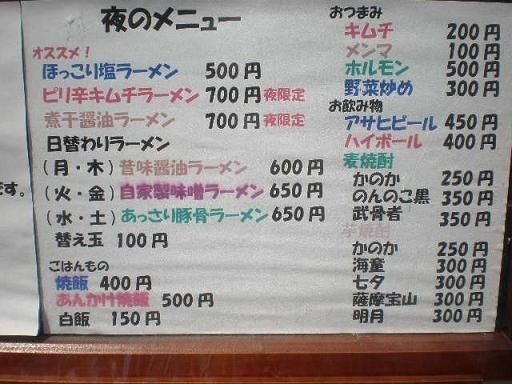 夜のメニュー
オススメ！
ほっこり塩ラーメン 500円
ピリ辛キムチラーメン 700円 夜限定
煮干醤油ラーメン 700円 夜限定
日替わりラーメン
（月・木）昔味醤油ラーメン 600円
（火・金）自家製味噌ラーメン 650円
（水・土）あっさり豚骨ラーメン 650円
替え玉 100円
ごはんもの
焼飯 400円
あんかけ焼飯 500円
白飯 150円
おつまみ
キムチ 200円
メンマ 100円
ホルモン 500円
野菜炒め 300円
お飲み物
アサヒビール 450円
ハイボール 400円
麦焼酎
かのか 250円
のんのこ黒 350円
武骨者 350円
芋焼酎
かのか 250円
海童 300円
七夕 300円
薩摩宝山 300円
明月 300円
です。